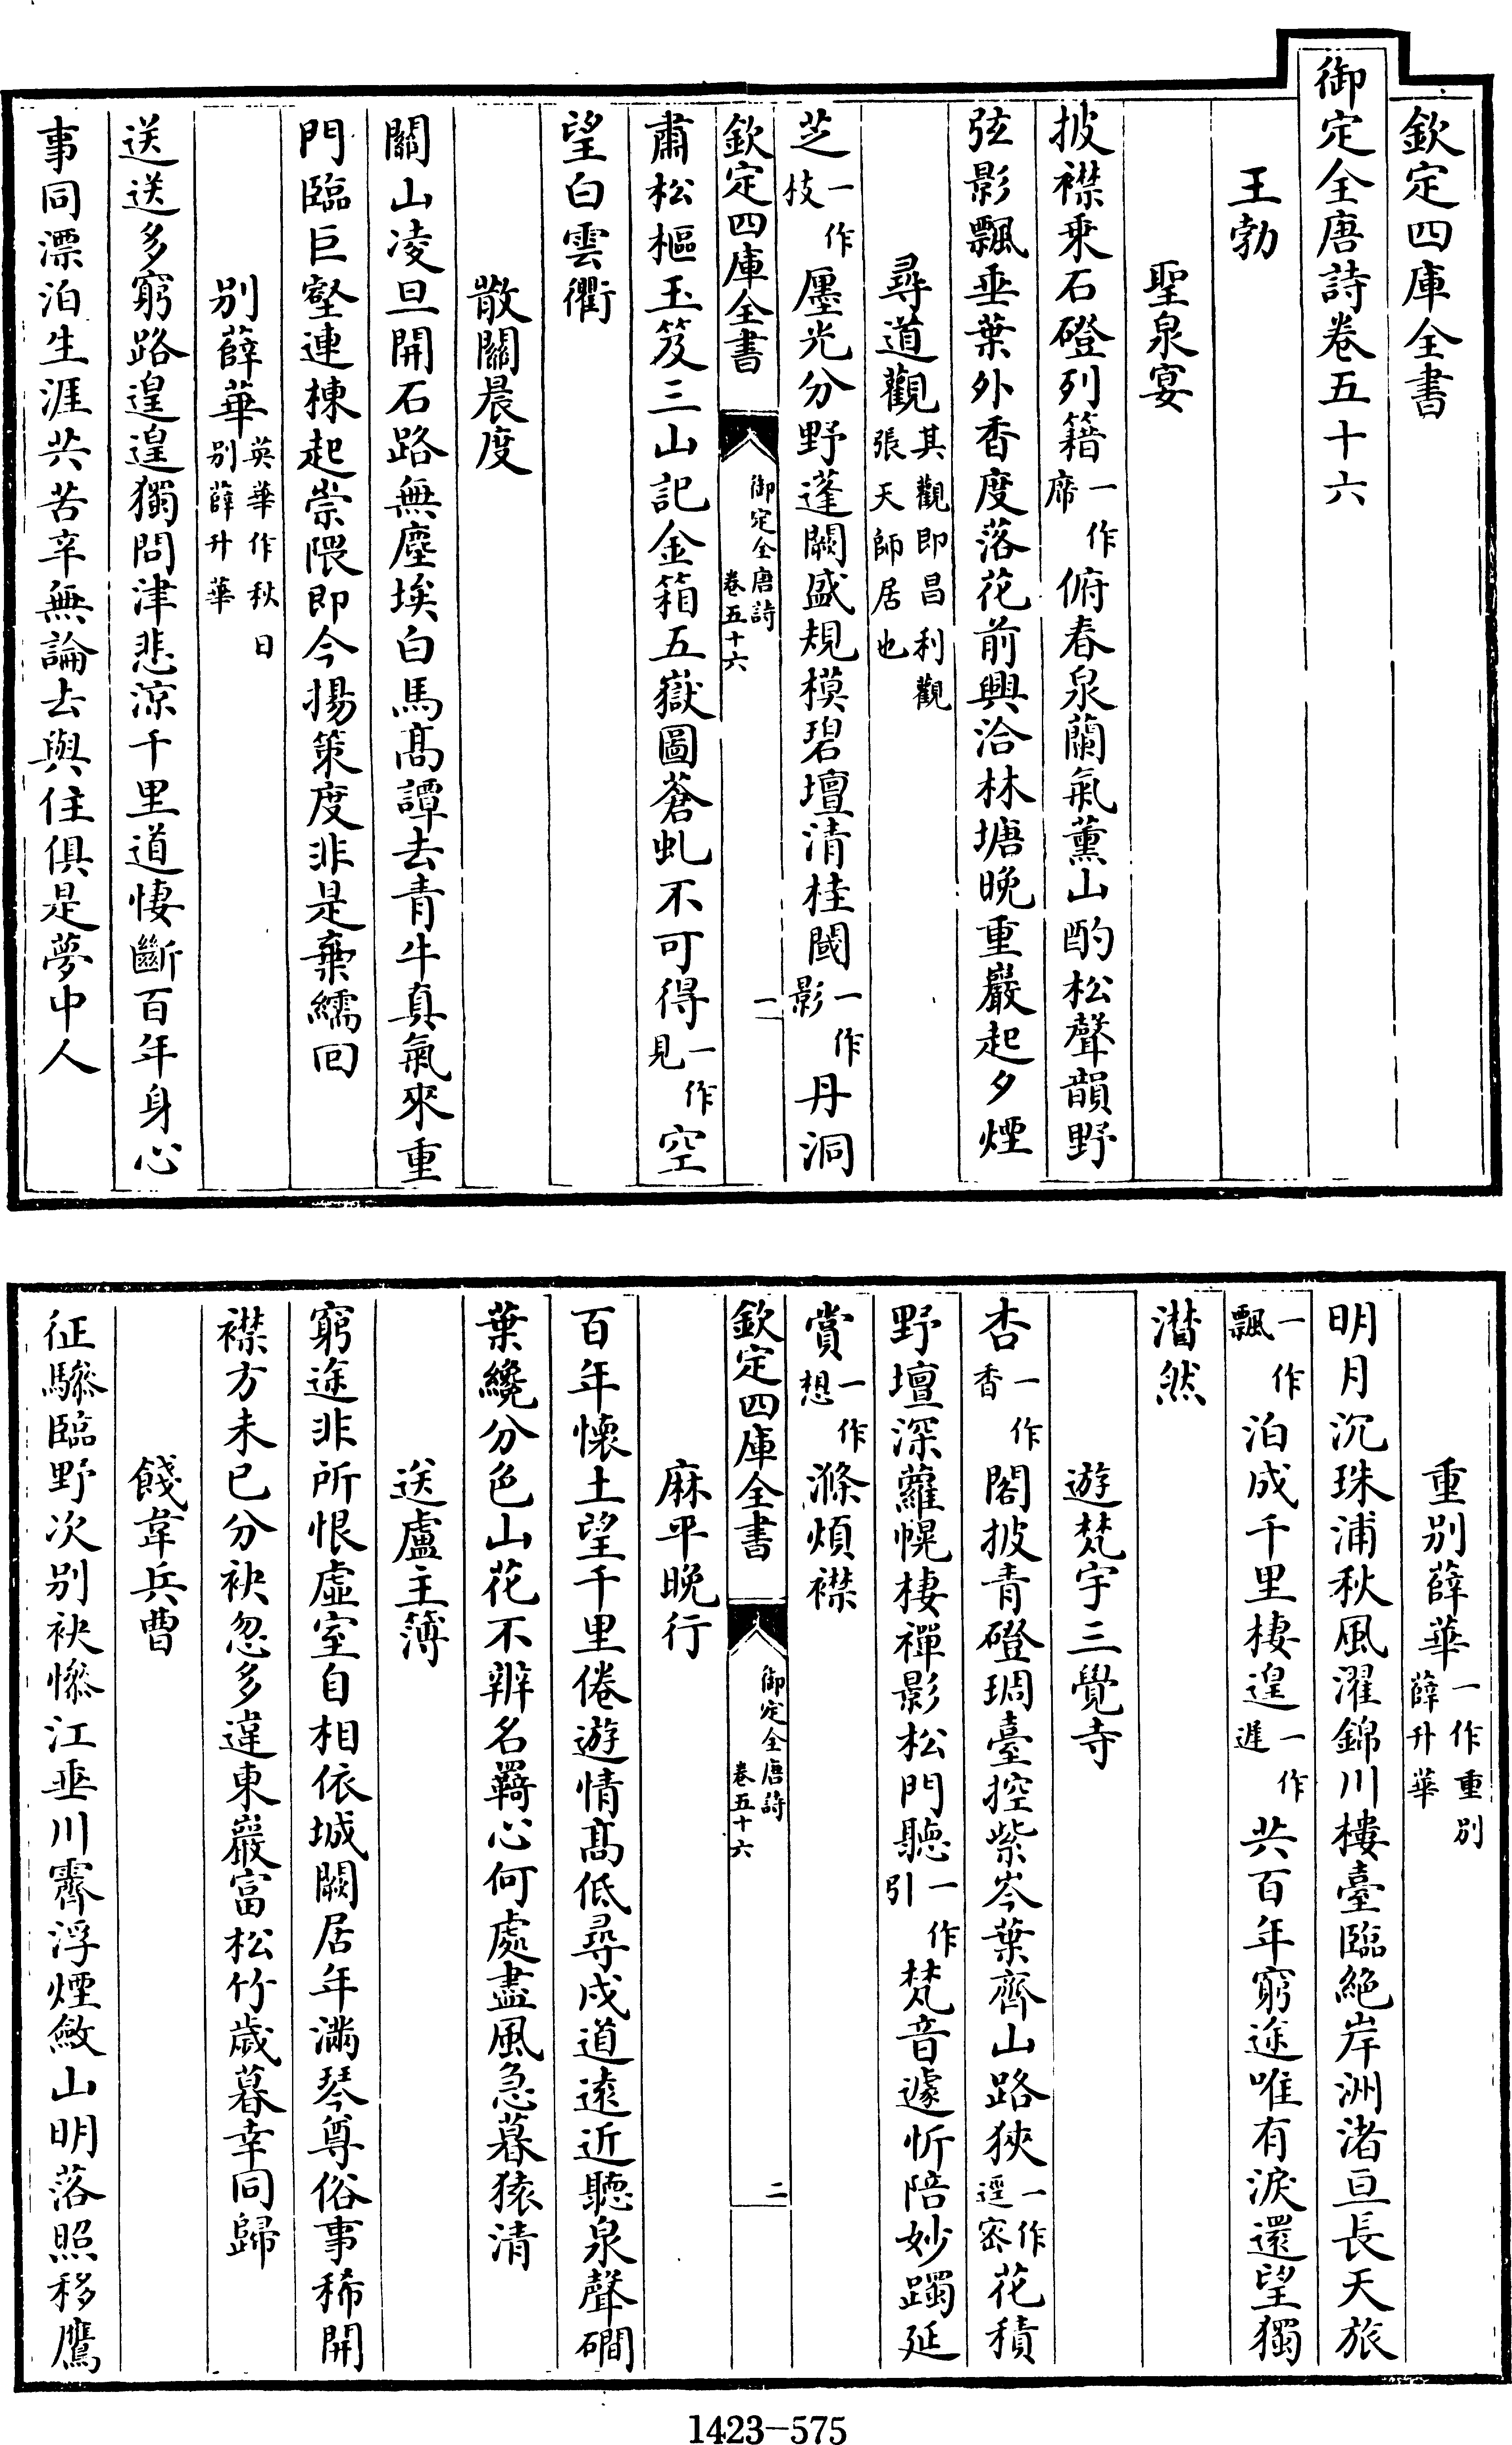 欽定四庫全書
御定全唐詩卷五十六
王勃
聖泉宴
披襟乗石磴列籍一作席俯春泉蘭氣薰山酌松聲韻野
弦影飄垂葉外香度落花前興洽林塘晚重巖起夕煙
尋道觀其觀即昌利觀張天師居也
芝一作枝廛光分野蓬闕盛規模碧壇清桂閾一作影丹洞
欽定四庫全書
御定全唐詩
卷五十六
一
肅松樞玉笈三山記金箱五嶽圖蒼虬不可得一作見空
望白雲衢
散關晨度
關山凌旦開石路無塵埃白馬髙譚去青牛真氣來重
門臨巨壑連棟起崇隈即今揚策度非是棄繻回
别薛華英華作秋日别薛升華
送送多窮路遑遑獨問津悲涼千里道悽斷百年身心
事同漂泊生涯共苦辛無論去與住俱是夢中人
重别薛華一作重别薛升華
明月沉珠浦秋風濯錦川樓臺臨絶岸洲渚亘長天旅
一作飄泊成千里棲遑一作遲共百年窮途唯有淚還望獨
潸然
遊梵宇三覺寺
杏一作香閣披青磴琱臺控紫岑葉齊山路狹一作逕密花積
野壇深蘿幌棲禪影松門聽一作引梵音遽忻陪妙躅延
賞一作想滌煩襟
欽定四庫全書
御定全唐詩
卷五十六
二
麻平晚行
百年懐土望千里倦遊情髙低尋戍道逺近聽泉聲磵
葉纔分色山花不辨名羇心何處盡風急暮猿清
送盧主簿
窮途非所恨虛室自相依城闕居年滿琴尊俗事稀開
襟方未已分袂忽多違東巖富松竹歲暮幸同歸
餞韋兵曹
征驂臨野次别袂慘江垂川霽浮煙斂山明落照移鷹
1423-575